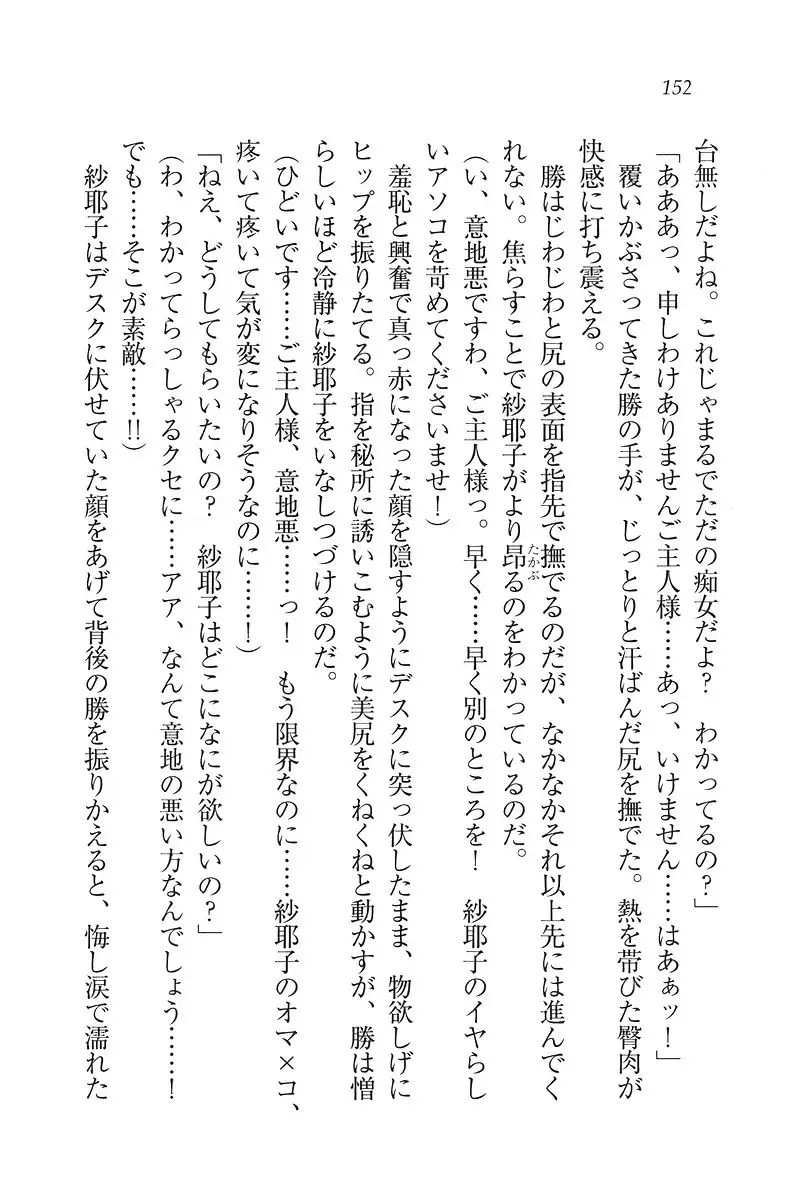 152
台無しだよね。これじゃまるでただの痴女だよ？　わかってるの？」
「あああっ、申しわけありませんご主人様……あっ、いけません……はあぁッ！」
　覆いかぶさってきた勝の手が、じっとりと汗ばんだ尻を撫でた。熱を帯びた臀肉が
快感に打ち震える。
　勝はじわじわと尻の表面を指先で撫でるのだが、なかなかそれ以上先には進んでく
れない。焦らすことで紗耶子がより昂るのをわかっているのだ。
たかぶ
（い、意地悪ですわ、ご主人様っ。早く……早く別のところを！　紗耶子のイヤらし
いアソコを苛めてくださいませ！）
　羞恥と興奮で真っ赤になった顔を隠すようにデスクに突っ伏したまま、物欲しげに
ヒップを振りたてる。指を秘所に誘いこむように美尻をくねくねと動かすが、勝は憎
らしいほど冷静に紗耶子をいなしつづけるのだ。
（ひどいです……ご主人様、意地悪……っ！　もう限界なのに……紗耶子のオマ×コ、
疼いて疼いて気が変になりそうなのに……！）
「ねえ、どうしてもらいたいの？　紗耶子はどこになにが欲しいの？」
（わ、わかってらっしゃるクセに……アア、なんて意地の悪い方なんでしょう……！
でも……そこが素敵……!!）
　紗耶子はデスクに伏せていた顔をあげて背後の勝を振りかえると、悔し涙で濡れた